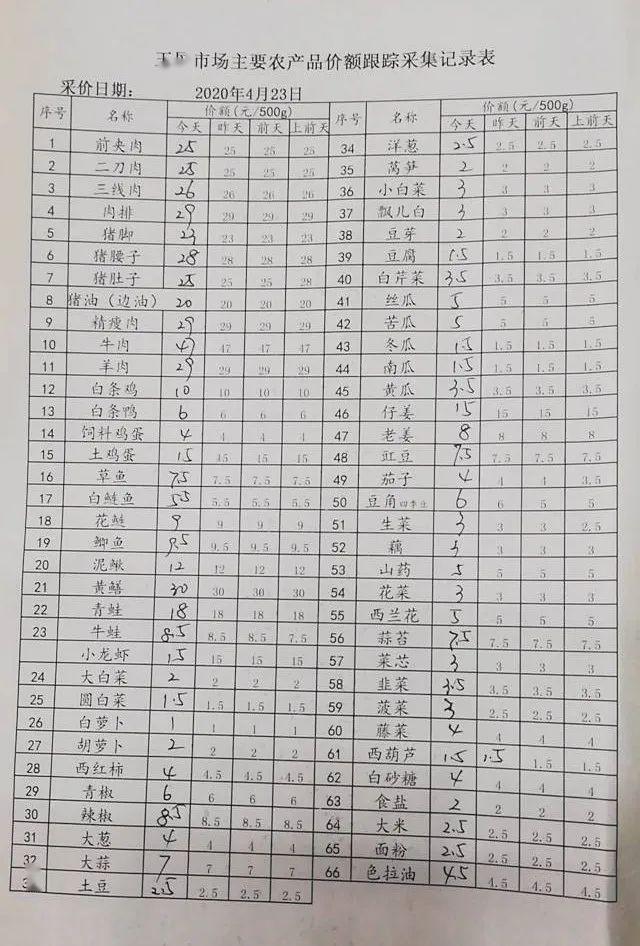 市场主要农产品价额跟踪采集记录表
采价日期： 2020年4月23日
序号 名称 价额(元/500g) 序号 名称 价额(元/500g)
今天 昨天 前天 上前天 今天 昨天 前天 上前天
1 前夹肉 25 25 25 25 34 洋葱 2.5 2.5 2.5 2.5
2 二刀肉 25 25 25 25 35 莴笋 2 2 2 2
3 三线肉 26 26 26 26 36 小白菜 3 3 3 3
4 肉排 29 29 29 29 37 瓢儿白 3 3 3 3
5 猪脚 23 23 23 23 38 豆芽 2 2 2 2
6 猪腰子 28 28 28 28 39 豆腐 1.5 1.5 1.5 1.5
7 猪肚子 25 25 25 28 40 白芹菜 3.5 3.5 3.5 3.5
8 猪油（边油） 20 20 20 20 41 丝瓜 5 5 5 5
9 精瘦肉 29 29 29 29 42 苦瓜 5 5 5 5
10 牛肉 47 47 47 47 43 冬瓜 1.5 1.5 1.5 1.5
11 羊肉 29 29 29 29 44 南瓜 1.5 1.5 1.5 1.5
12 白条鸡 10 10 10 10 45 黄瓜 3.5 3.5 3.5 3.5
13 白条鸭 6 6 6 6 46 仔姜 15 15 15 15
14 饲料鸡蛋 4 4 4 4 47 老姜 8 8 8 8
15 土鸡蛋 15 15 15 15 48 豇豆 7.5 7.5 7.5 7.5
16 草鱼 7.5 7.5 7.5 7.5 49 茄子 4 4 4 3.5
17 白鲢鱼 5.5 5.5 5.5 5.5 50 豆角四季豆 6 6 5 5
18 花鲢 9 9 9 9 51 生菜 3 3 3 2.5
19 鲫鱼 9.5 9.5 9.5 9.5 52 藕 3 3 3 3
20 泥鳅 12 12 12 12 53 山药 5 5 5 5
21 黄鳝 30 30 30 30 54 花菜 3 3 3 3
22 青蛙 18 18 18 18 55 西兰花 5 5 5 5
23 牛蛙 8.5 8.5 8.5 7.5 56 蒜苔 7.5 7.5 7.5 7.5
小龙虾 15 15 15 15 57 菜芯 3 3 3 3
24 大白菜 2 2 2 2 58 韭菜 3.5 3.5 3.5 3.5
25 圆白菜 1.5 1.5 1.5 1.5 59 菠菜 3 2.5 2.5 2.5
26 白萝卜 1 1 1 1 60 藤菜 4 4 4 4
27 胡萝卜 2 2 2 2 61 西葫芦 1.5 1.5 1.5 1.5
28 西红柿 4 4.5 4.5 4.5 62 白砂糖 4 4 4 4
29 青椒 6 6 6 6 63 食盐 2 2 2 2
30 辣椒 8.5 8.5 8.5 8.5 64 大米 2.5 2.5 2.5 2.5
31 大葱 4 4 4 4 65 面粉 2.5 2.5 2.5 2.5
32 大蒜 7 7 7 7 66 色拉油 4.5 4.5 4.5 4.5
土豆 2.5 2.5 2.5 2.5